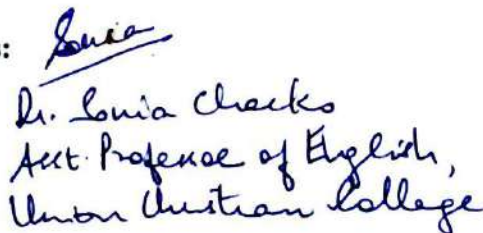 : Sonia
Dr. Sonia Chacko
Asst. Professor of English,
Union Christian College